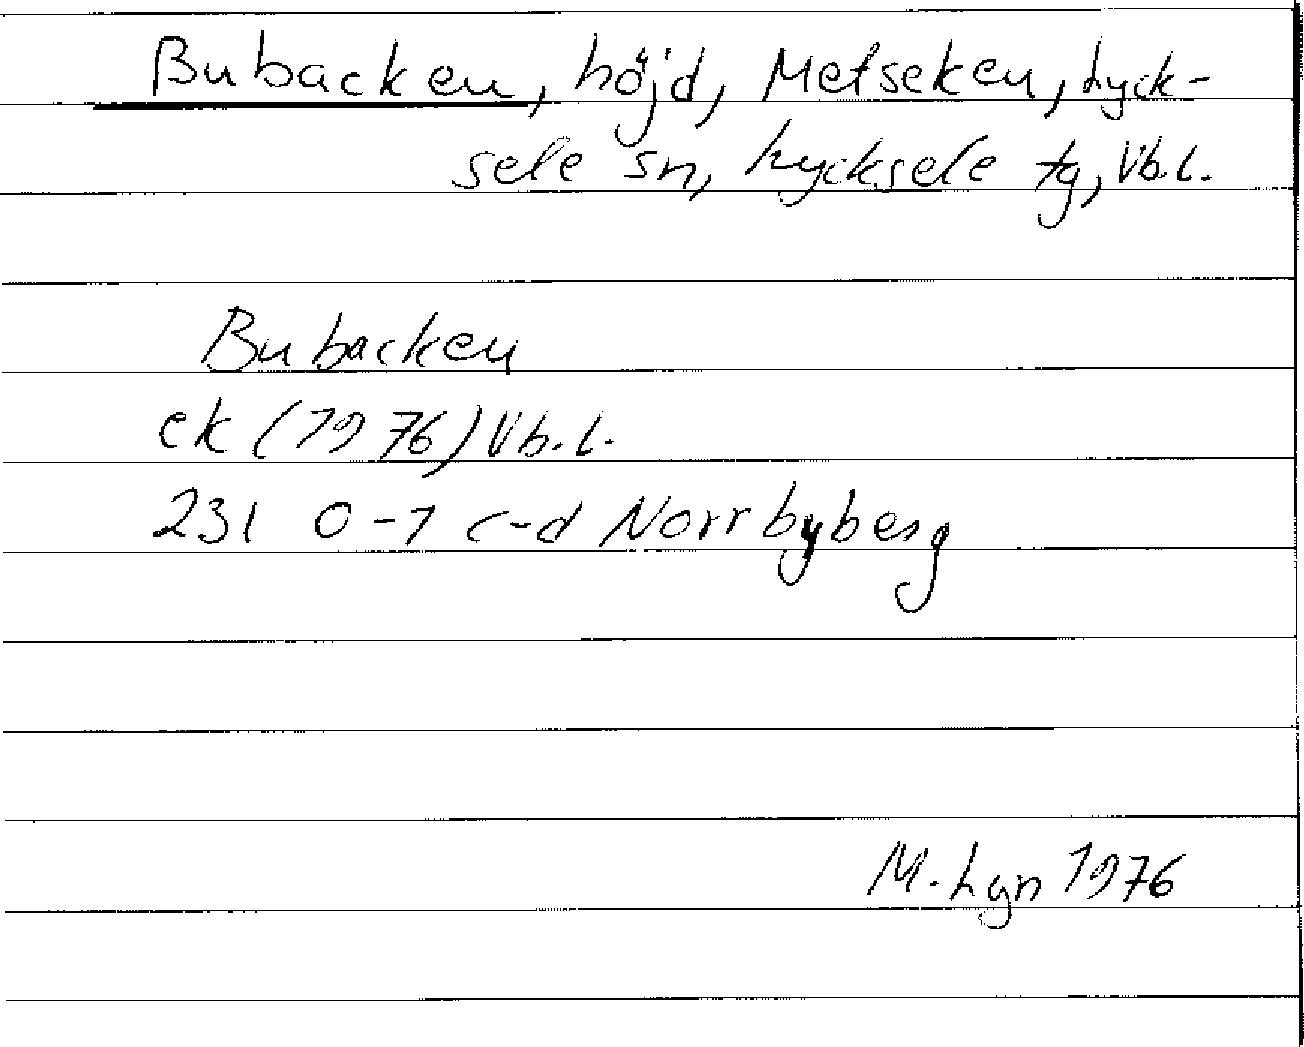 Bubacken, höjd, Metseken, Lyck-
sele sn, Lycksele tg, Vb.l.
Bubacken
ek (1976) Vb.l.
23I 0-1 c-d Norrbyberg
M. Lgn 1976